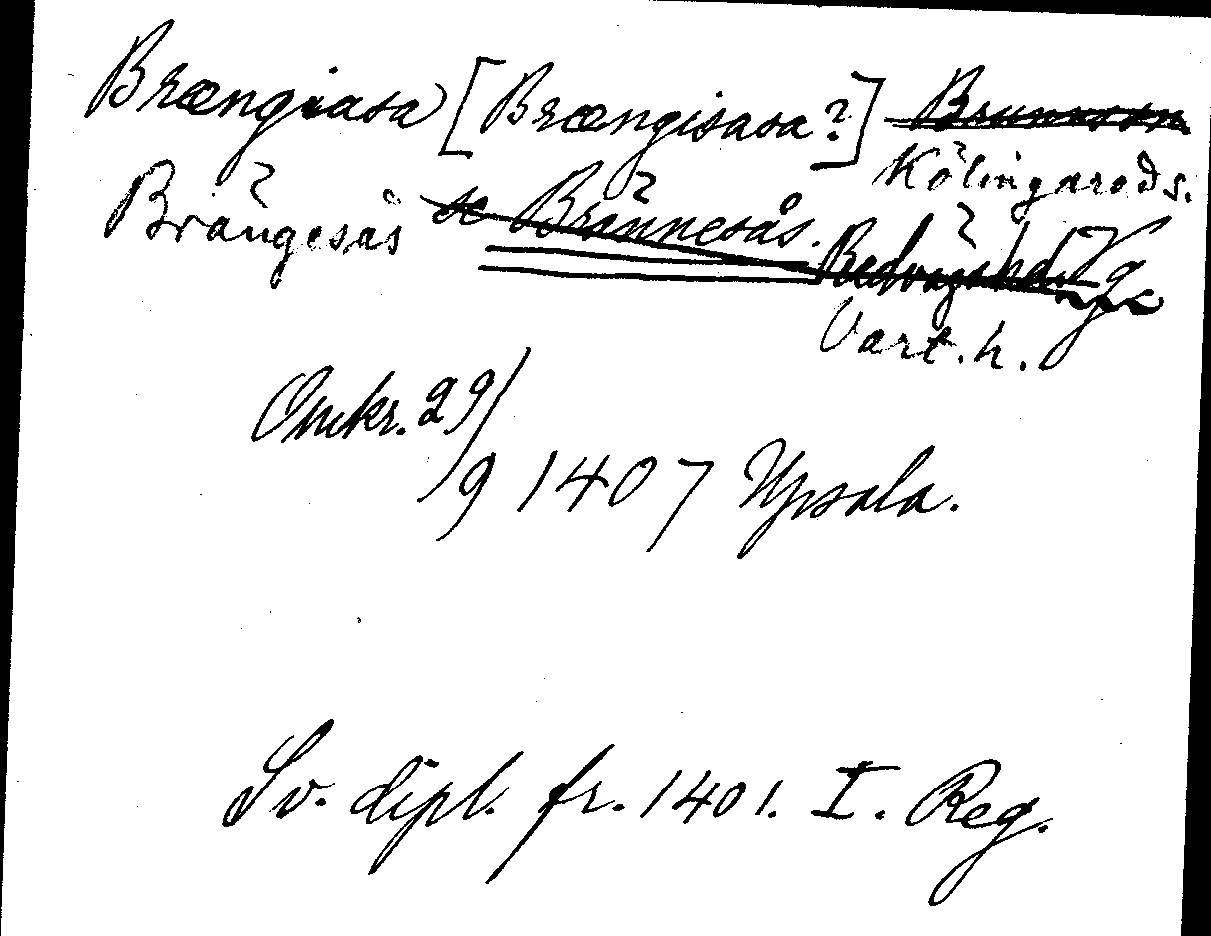 Brængiasa [Brængisasa?]
Kölingareds s.
Brängesås se Brännesås. Vg
Vart. h.
Omkr. 29/9 1407 Upsala.
Sv. dipl. fr. 1401. I. Reg.